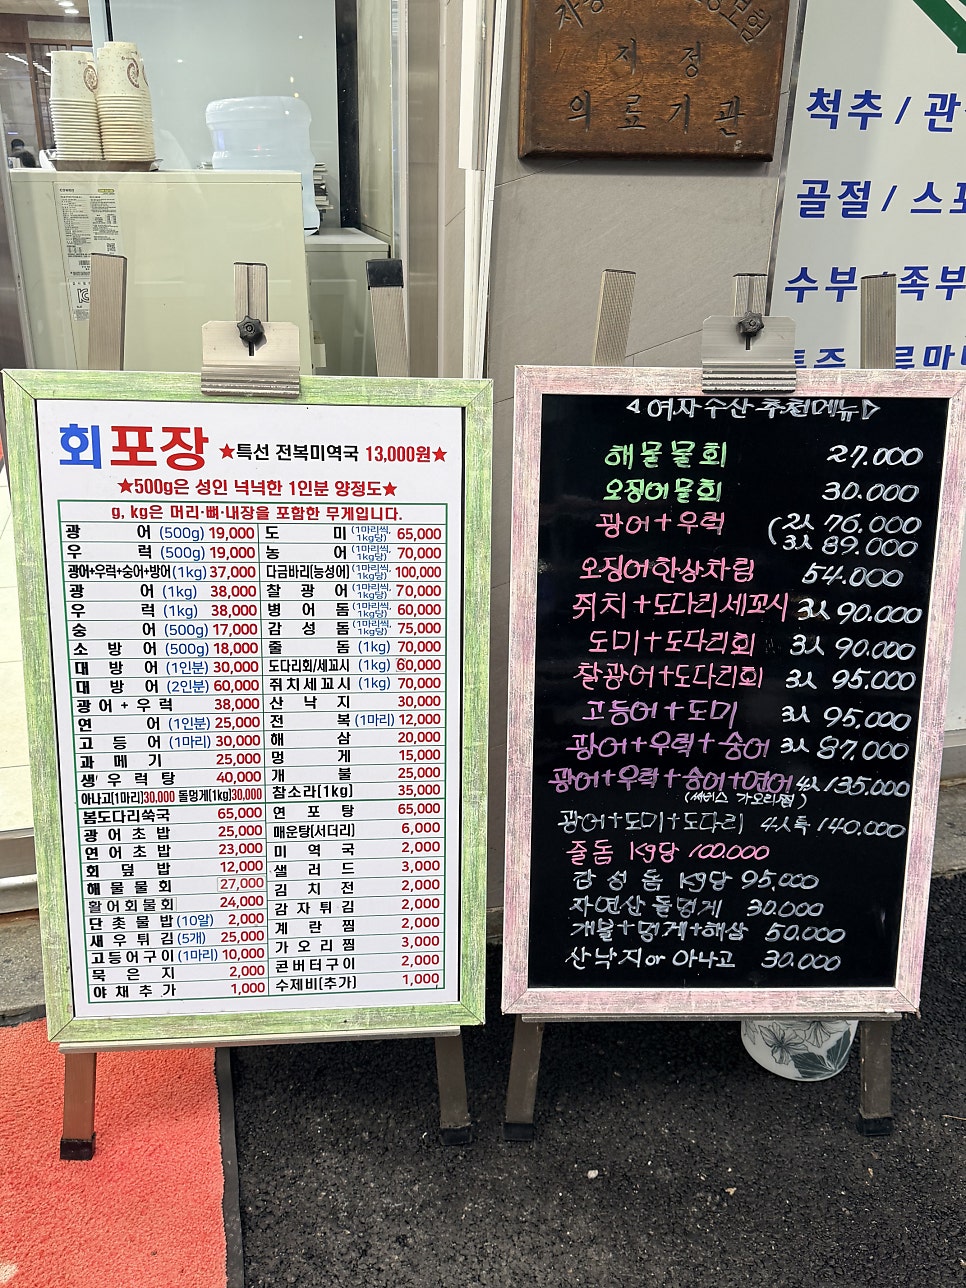 지정
의료기관
척추 / 관
골절 / 스포
수부 / 족부
회포장 ★특선 전복미역국 13,000원★
★500g은 성인 넉넉한 1인분 양정도★
g, kg은 머리·뼈·내장을 포함한 무게입니다.
광 어 (500g) 19,000
우 럭 (500g) 19,000
광어+우럭+숭어+방어(1kg) 37,000
광 어 (1kg) 38,000
우 럭 (1kg) 38,000
숭 어 (500g) 17,000
소 방 어 (500g) 18,000
대 방 어 (1인분) 30,000
대 방 어 (2인분) 60,000
광어+우럭 38,000
연 어 (1인분) 25,000
고 등 어 (1마리) 30,000
과 메 기 25,000
생 우 럭 탕 40,000
아나고[1마리]30,000 돌멍게[1kg]30,000
봄도다리쑥국 65,000
광 어 초 밥 25,000
연 어 초 밥 23,000
회 덮 밥 12,000
해 물 물 회 27,000
활어회물회 24,000
단 촛 물 밥 (10알) 2,000
새 우 튀 김 (5개) 25,000
고등어구이 (1마리) 10,000
묵 은 지 2,000
야 채 추 가 1,000
도 미 (1마리씩, 1kg당) 65,000
농 어 (1마리씩, 1kg당) 70,000
다금바리[능성어] (1마리씩, 1kg당) 100,000
찰 광 어 (1마리씩, 1kg당) 70,000
병 어 돔 (1마리씩, 1kg당) 60,000
감 성 돔 (1마리씩, 1kg당) 75,000
줄 돔 (1kg) 70,000
도다리회/세꼬시 (1kg) 60,000
쥐치세꼬시 (1kg) 70,000
산 낙 지 30,000
전 복 (1마리) 12,000
해 삼 20,000
멍 게 15,000
개 불 25,000
참소라[1kg] 35,000
연 포 탕 65,000
매운탕(서더리) 6,000
미 역 국 2,000
샐 러 드 3,000
김 치 전 2,000
감 자 튀 김 2,000
계 란 찜 2,000
가 오 리 찜 3,000
콘버터구이 2,000
수제비[추가] 1,000
◁여자수산 추천메뉴▷
해물물회 27.000
오징어물회 30.000
광어+우럭 (2人 76.000
3人 89.000
오징어한상차림 54.000
쥐치+도다리세꼬시 3人 90.000
도미+도다리회 3人 90.000
찰광어+도다리회 3人 95.000
고등어+도미 3人 95,000
광어+우럭+숭어 3人 87.000
광어+우럭+숭어+연어 4人 135.000
(써비스 가오리찜)
광어+도미+도다리 4人특 140.000
줄돔 Kg당 100.000
감성돔 Kg당 95,000
자연산돌멍게 30.000
개불+멍게+해삼 50.000
산낙지or 아나고 30.000